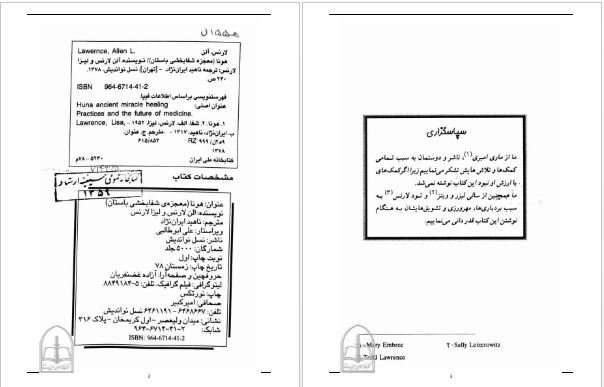 Lawernce, Allen L.
لارنس، آلن
هونا (معجزه شفابخشی باستان)/ نویسنده آلن لارنس و لیزا
لارنس؛ ترجمه ناهید ایران‌نژاد. - [تهران]: نسل نواندیش، ۱۳۷۸.
۲۴۰ ص.
ISBN 964-6714-41-2
فهرستنویسی براساس اطلاعات فیپا.
عنوان اصلی: Huna ancient miracle healing
Practices and the future of medicine.
۱. هونا. ۲. شفا. الف. لارنس، لیزا، ۱۹۵۲ - Lawrence, Lisa
ب. ایران‌نژاد، ناهید، ۱۳۱۷ - مترجم. ج. عنوان.
۶۱۵/۸۵۲ RZ ۹۹۹
۱۳۷۸
کتابخانه ملی ایران ۵۲۳۰-۷۸م
کتابخانه حسینیه ارشاد
۱۳۵۹
مشخصات کتاب
عنوان: هونا (معجزه‌ی شفابخشی باستان)
نویسنده: آلن لارنس و لیزا لارنس
مترجم: ناهید ایران‌نژاد
ویراستار: علی ابوطالبی
ناشر: نسل نواندیش
شمارگان: ۵۰۰۰ جلد
نوبت چاپ: اول
تاریخ چاپ: زمستان ۷۸
حروفچین و صفحه‌آرا: آزاده غضنفریان
لیتوگرافی: فیلم گرافیک، تلفن: ۵-۸۸۴۹۱۸۴
چاپ: نورتکس
صحافی: امیرکبیر
تلفن: ۶۴۶۸۶۶۷ - ۶۴۶۱۱۹۱ نسل نواندیش
نشانی: میدان ولیعصر - اول کریمخان - پلاک ۳۱۶
شابک: ۲-۴۱-۶۷۱۴-۹۶۴
ISBN: 964-6714-41-2
2
سپاسگزاری
ما از ماری امبری (۱)، ناشر و دوستمان به سبب تمامی
کمک‌ها و تلاش‌هایش تشکر می‌نماییم زیرا اگر کمک‌های
با ارزش او نبود این کتاب نوشته نمی‌شد.
ما همچنین از سالی لیزر و ویتز (۲) و تود لارنس (۳) به
سبب بردباری‌ها، مهرورزی و تشویق‌هایشان به هنگام
نوشتن این کتاب قدردانی می‌نماییم.
1-Mary Embree ۲-Sally Leizerowitz
Todd Lawrence
3